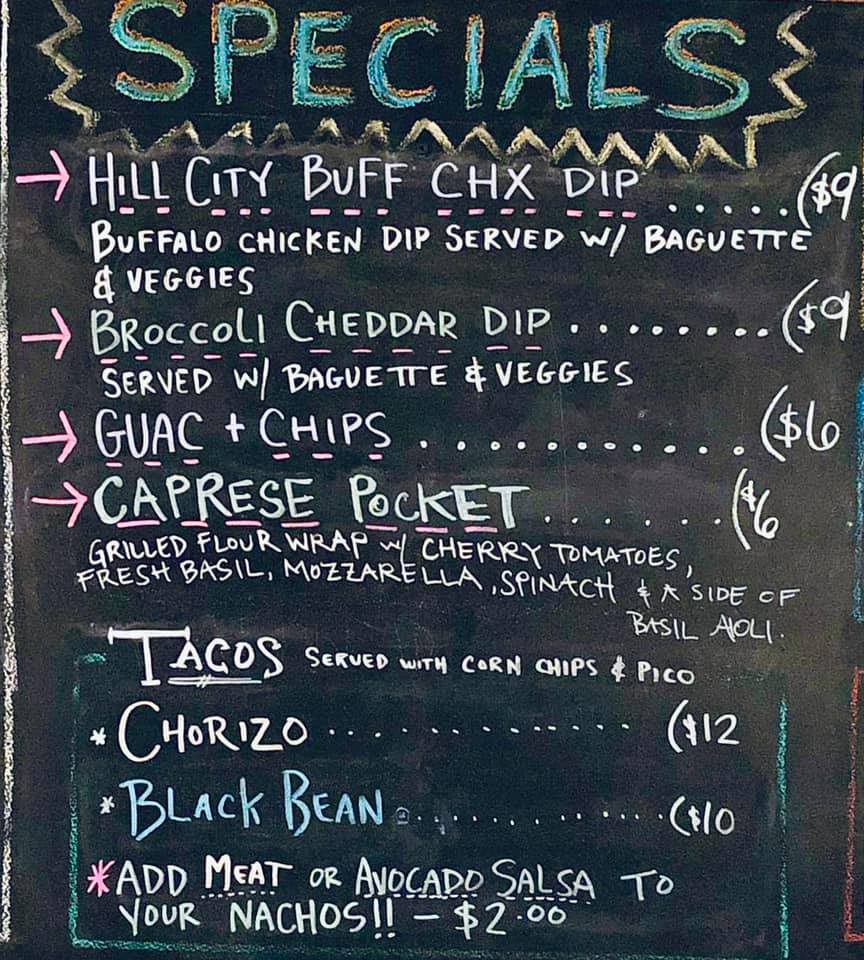 SPECIALS
→ HILL CITY BUFF CHX DIP ...... ($9
BUFFALO CHICKEN DIP SERVED W/ BAGUETTE
& VEGGIES
→ BROCCOLI CHEDDAR DIP ......... ($9
SERVED W/ BAGUETTE & VEGGIES
→ GUAC + CHIPS ............ ($6
→ CAPRESE POCKET ....... ($6
GRILLED FLOUR WRAP w/ CHERRY TOMATOES,
FRESH BASIL, MOZZARELLA, SPINACH & A SIDE OF
BASIL AIOLI.
TACOS SERVED WITH CORN CHIPS & PICO
* CHORIZO .............. ($12
* BLACK BEAN .............. ($10
* ADD MEAT OR AVOCADO SALSA TO
YOUR NACHOS!! - $2.00